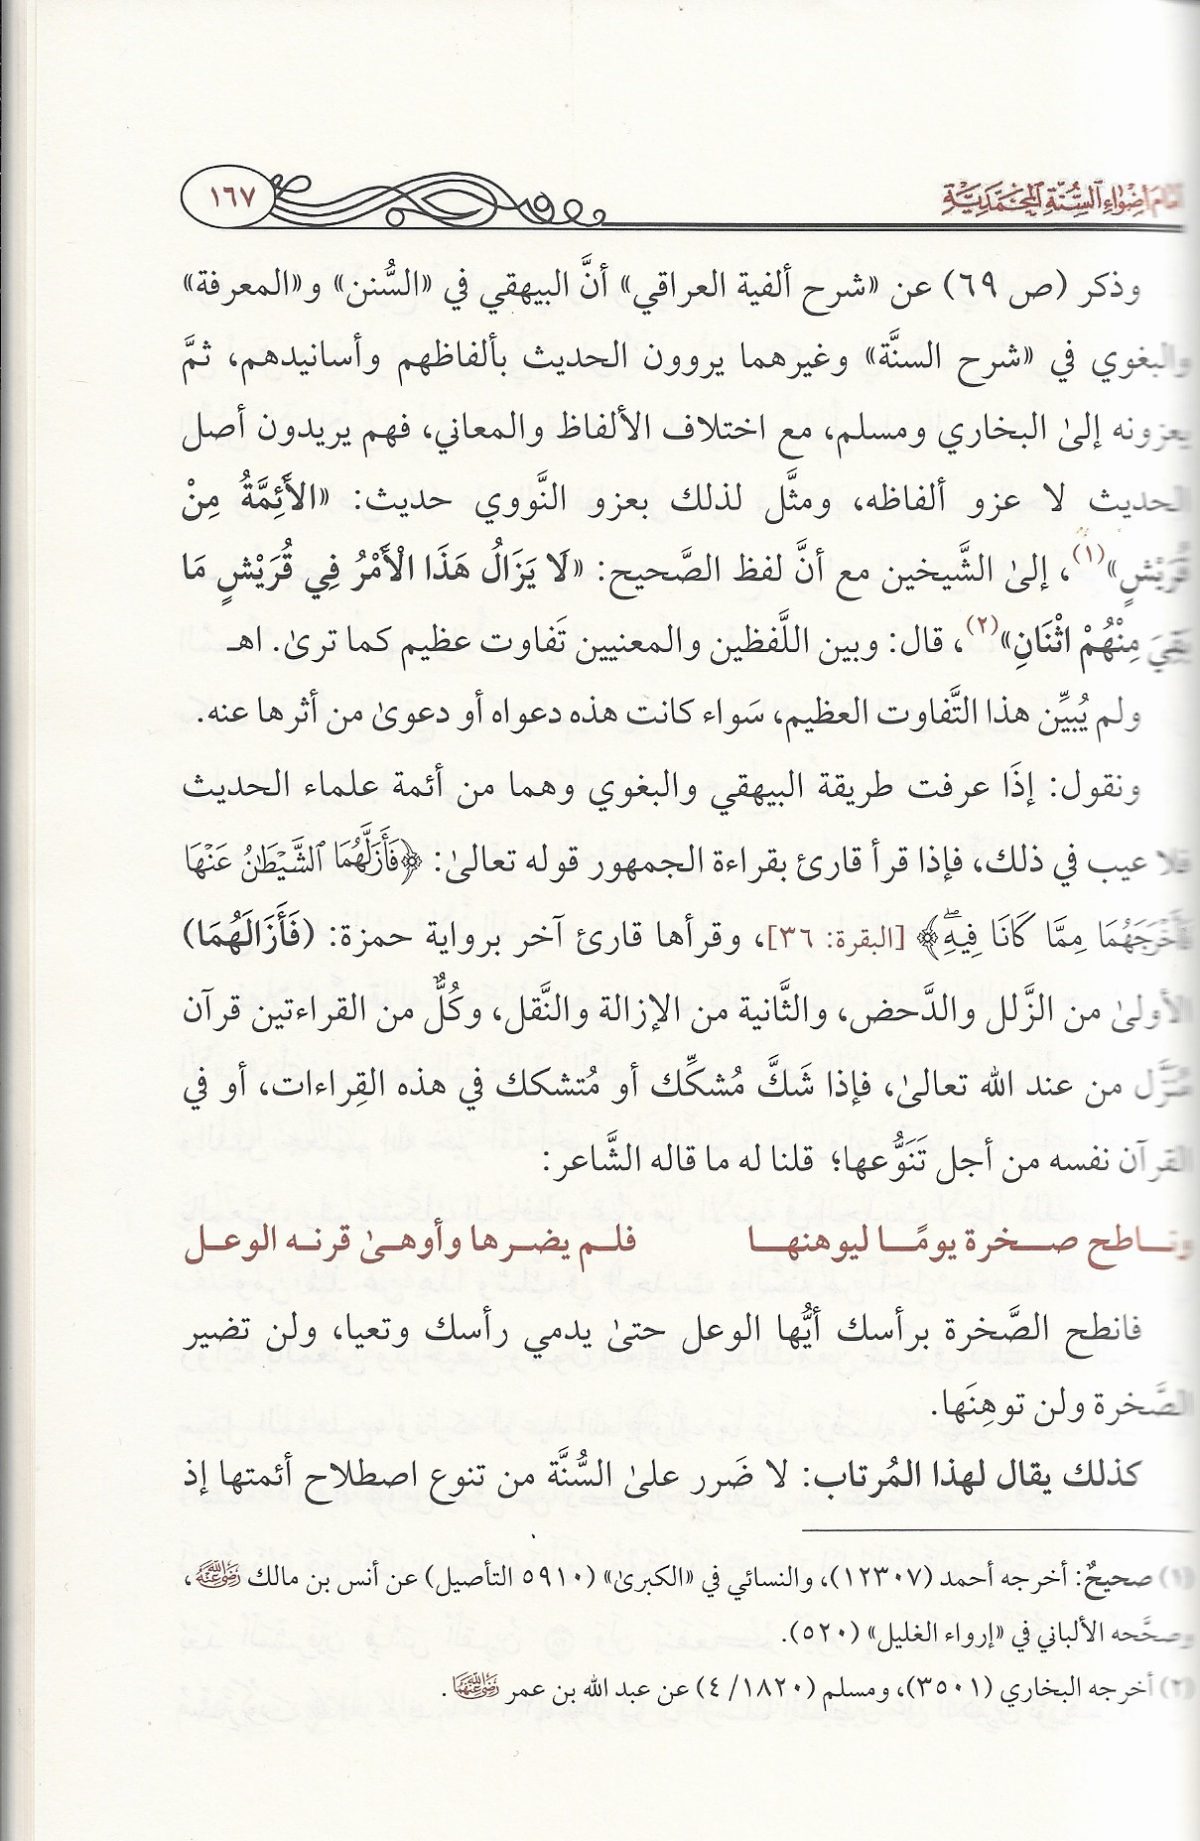 ١٦٧
أضواء السنة المحمدية
وذكر (ص ٦٩) عن «شرح ألفية العراقي» أنَّ البيهقي في «السُّنن» و«المعرفة»
والبغوي في «شرح السنَّة» وغيرهما يروون الحديث بألفاظهم وأسانيدهم، ثمَّ
يعزونه إلىٰ البخاري ومسلم، مع اختلاف الألفاظ والمعاني، فهم يريدون أصل
الحديث لا عزو ألفاظه، ومثَّل لذلك بعزو النَّووي حديث: «الأَئِمَّةُ مِنْ
قُرَيْشٍ»(١)، إلىٰ الشَّيخين مع أنَّ لفظ الصَّحيح: «لَا يَزَالُ هَذَا الْأَمْرُ فِي قُرَيْشٍ مَا
بَقِيَ مِنْهُمْ اثْنَانِ»(٢)، قال: وبين اللَّفظين والمعنيين تَفاوت عظيم كما ترىٰ. اهـ
ولم يُبيِّن هذا التَّفاوت العظيم، سَواء كانت هذه دعواه أو دعوىٰ من أثرها عنه.
ونقول: إذَا عرفت طريقة البيهقي والبغوي وهما من أئمة علماء الحديث
فلا عيب في ذلك، فإذا قرأ قارئ بقراءة الجمهور قوله تعالىٰ: ﴿فَأَزَلَّهُمَا ٱلشَّيْطَٰنُ عَنْهَا
فَأَخْرَجَهُمَا مِمَّا كَانَا فِيهِۖ﴾ [البقرة: ٣٦]، وقرأها قارئ آخر برواية حمزة: (فَأَزَالَهُمَا)
الأولىٰ من الزَّلل والدَّحض، والثَّانية من الإزالة والنَّقل، وكُلٌّ من القراءتين قرآن
مُنَزَّل من عند الله تعالىٰ، فإذا شَكَّ مُشكِّك أو مُتشكك في هذه القِراءات، أو في
القرآن نفسه من أجل تَنَوُّعها؛ قلنا له ما قاله الشَّاعر:
وناطح صخرة يومًا ليوهنها فلم يضرها وأوهىٰ قرنه الوعل
فانطح الصَّخرة برأسك أيُّها الوعل حتىٰ يدمي رأسك وتعيا، ولن تضير
الصَّخرة ولن توهِنَها.
كذلك يقال لهذا المُرتاب: لا ضَرر علىٰ السُّنَّة من تنوع اصطلاح أئمتها إذ
(١) صحيحٌ: أخرجه أحمد (١٢٣٠٧)، والنسائي في «الكبرىٰ» (٥٩١٠ التأصيل) عن أنس بن مالك رَضِيَ اللَّهُ عَنْهُ،
وصحَّحه الألباني في «إرواء الغليل» (٥٢٠).
(٢) أخرجه البخاري (٣٥٠١)، ومسلم (١٨٢٠/ ٤) عن عبد الله بن عمر رَضِيَ اللَّهُ عَنْهُمَا.